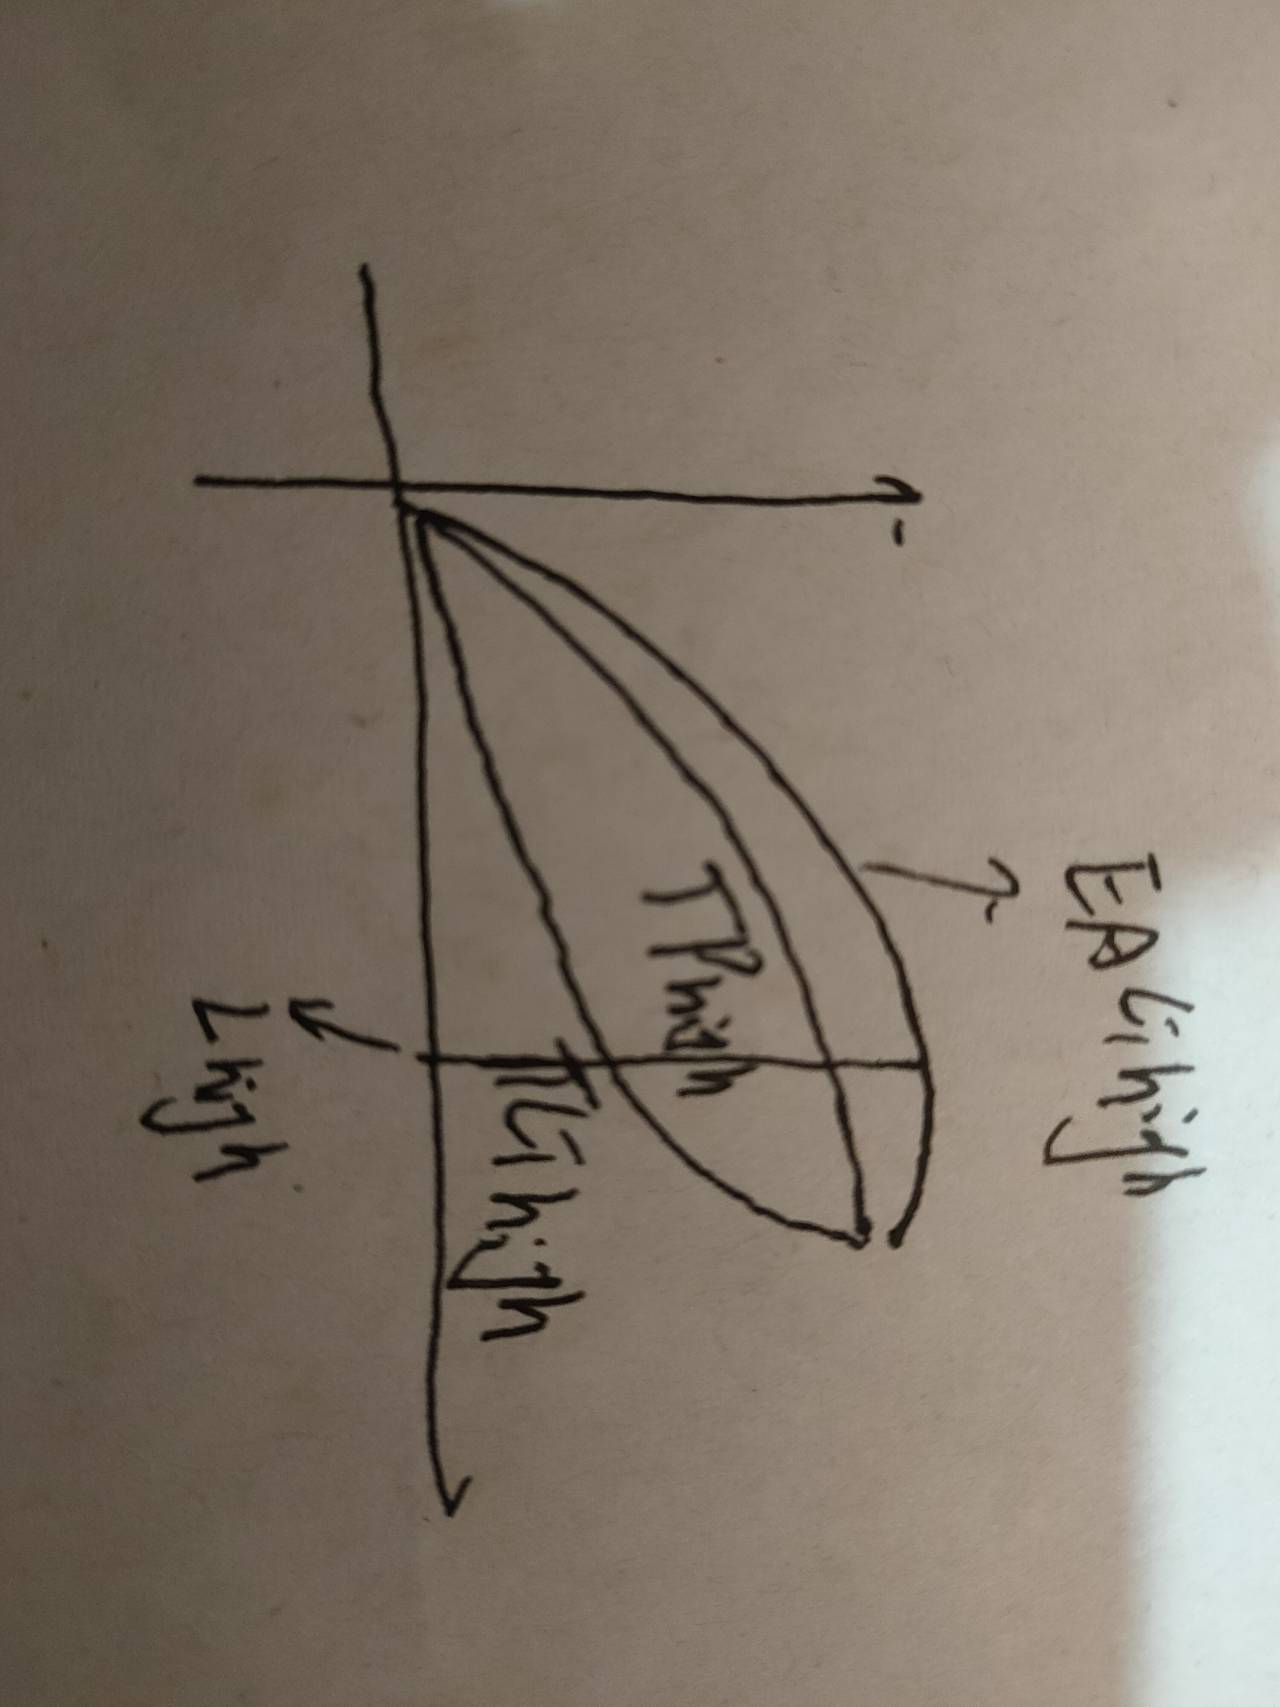 EA Li high
TP high
TLi high
L high